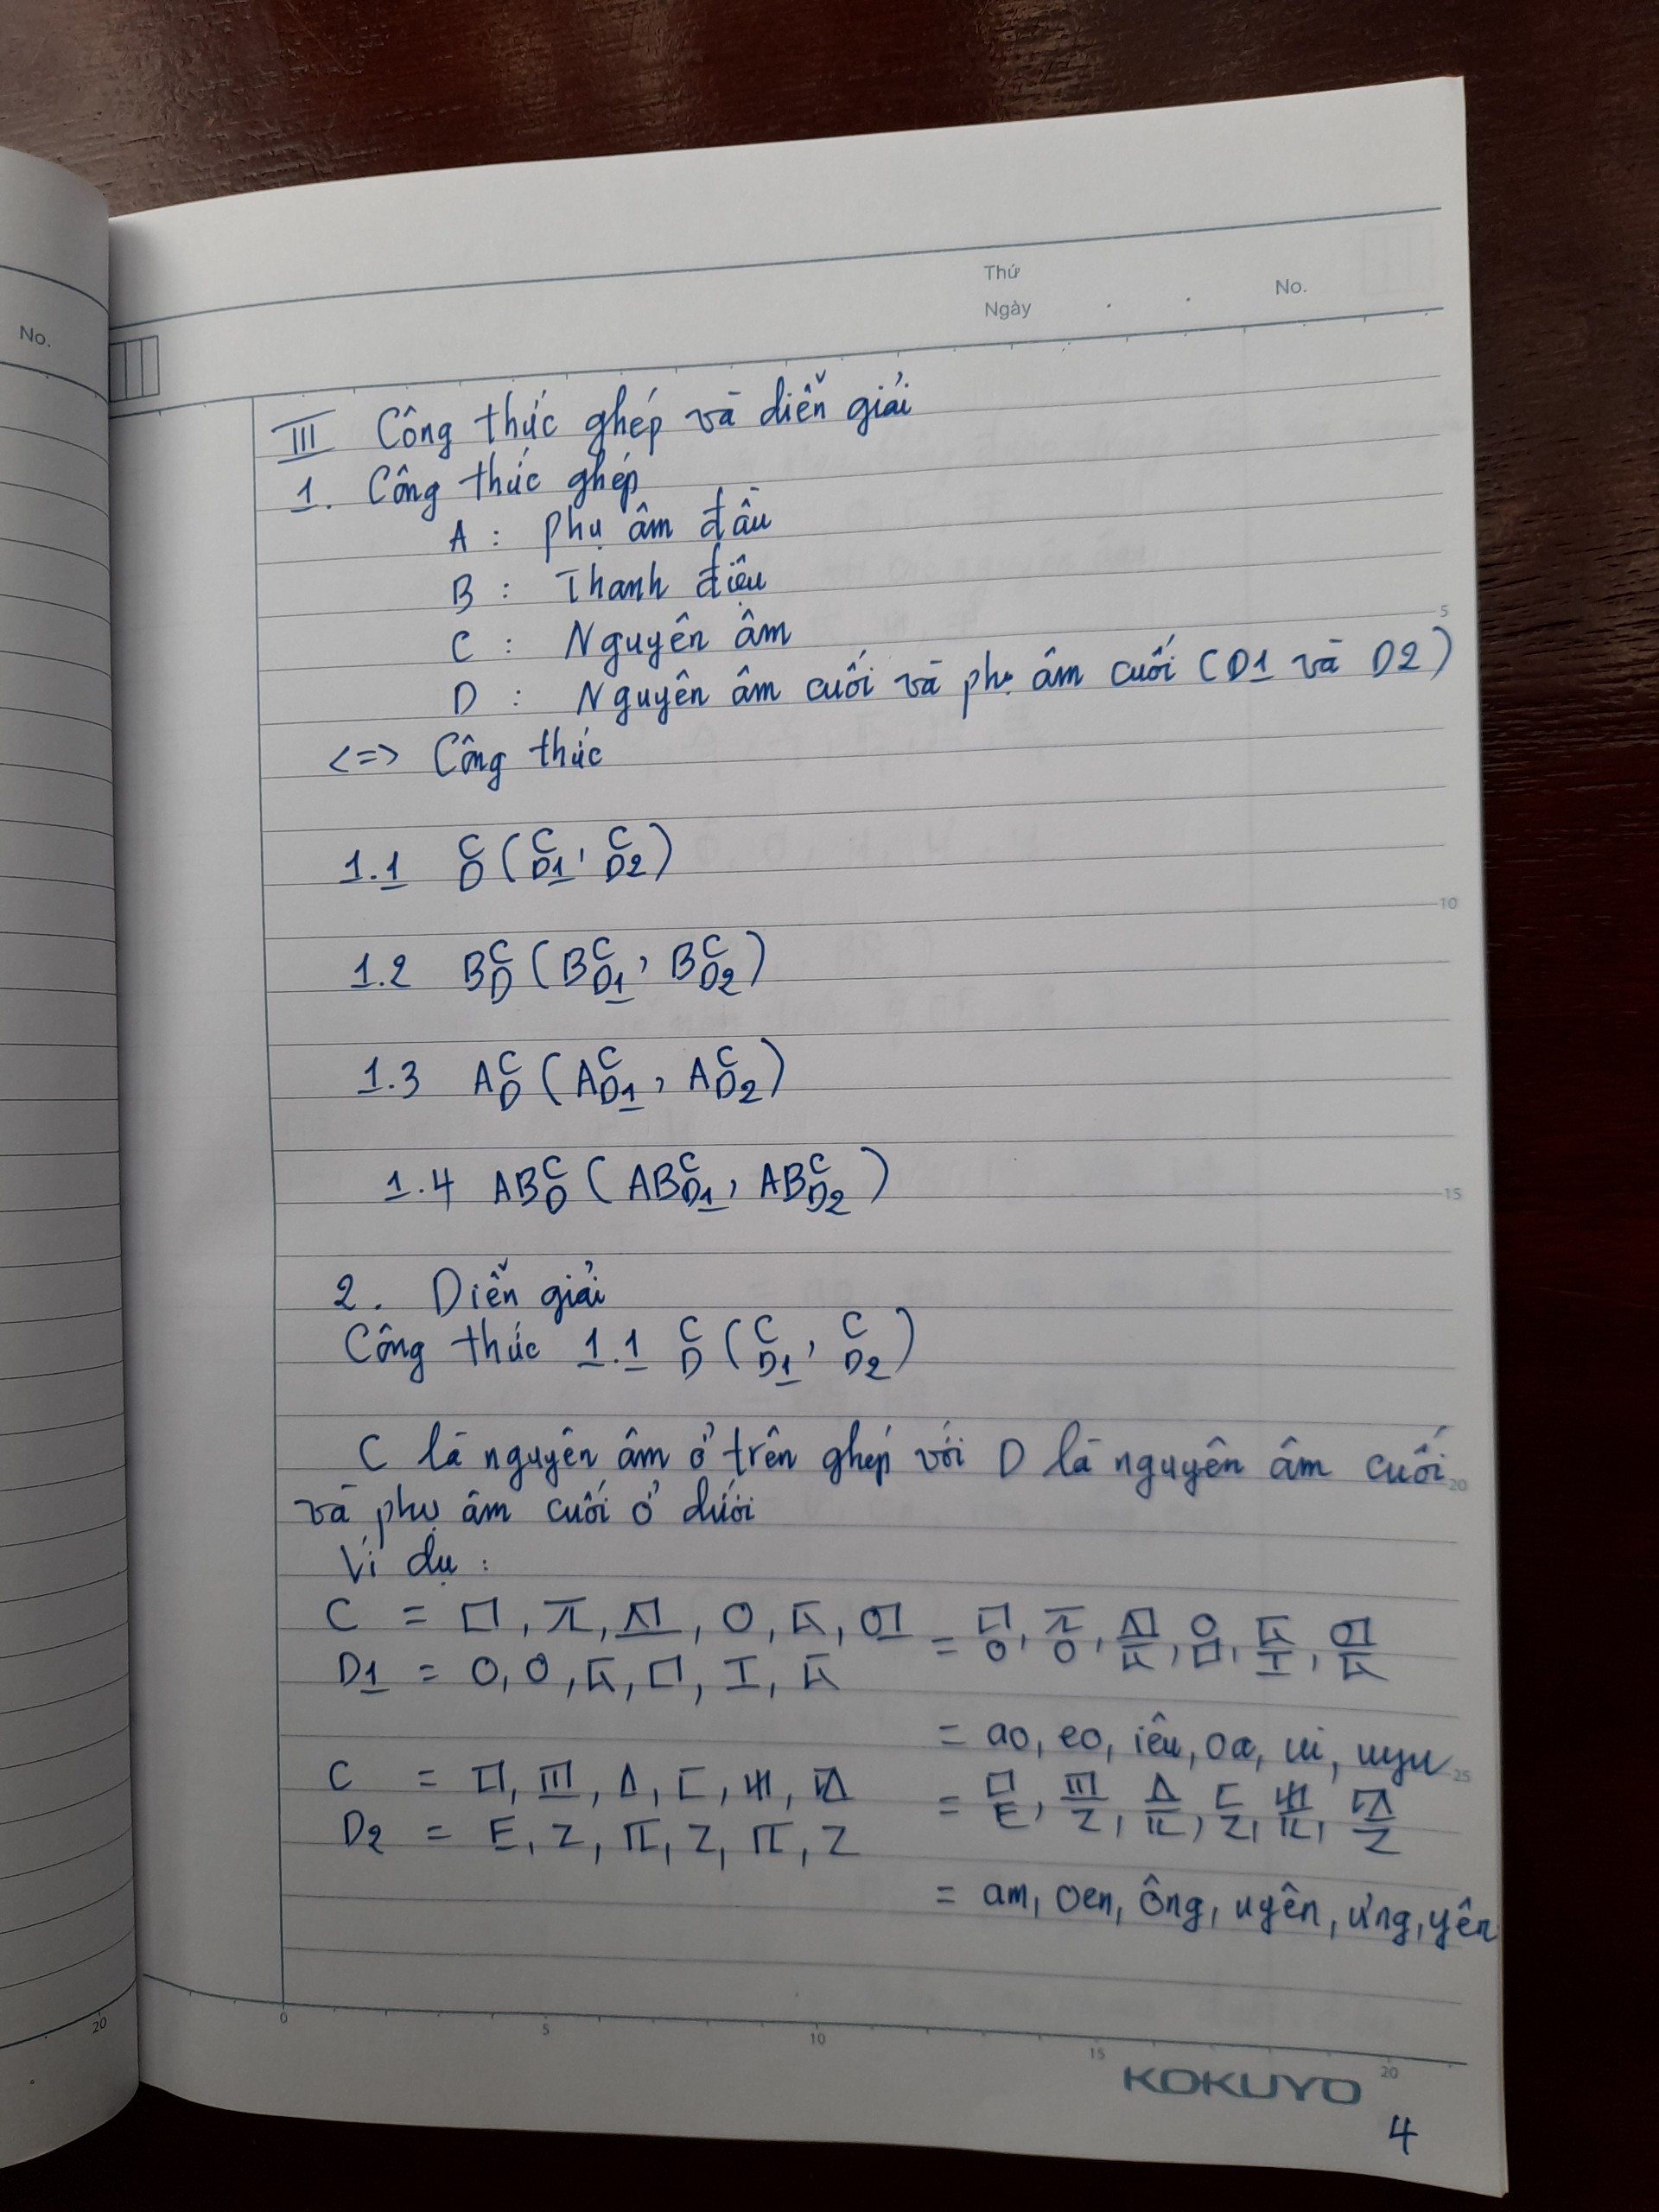 No.
Thứ
Ngày . . No.
III Công thức ghép và diễn giải
1. Công thức ghép
A : Phụ âm đầu
B : Thanh điệu
C : Nguyên âm
D : Nguyên âm cuối và phụ âm cuối (D1 và D2)
<=> Công thức
5
1.1 C D ( C D1 , C D2 )
10
1.2 B C D ( B C D1 , B C D2 )
1.3 A C D ( A C D1 , A C D2 )
1.4 AB C D ( AB C D1 , AB C D2 )
15
2. Diễn giải
Công thức 1.1 C D ( C D1 , C D2 )
C là nguyên âm ở trên ghép với D là nguyên âm cuối
20
và phụ âm cuối ở dưới
Ví dụ :
C =
D1 =
= ao, eo, iêu, oa, ui, uyu
25
C =
D2 = E, Z,
= am, oen, ông, uyên, ưng, yên
20
0 5 10 15 20
KOKUYO
4